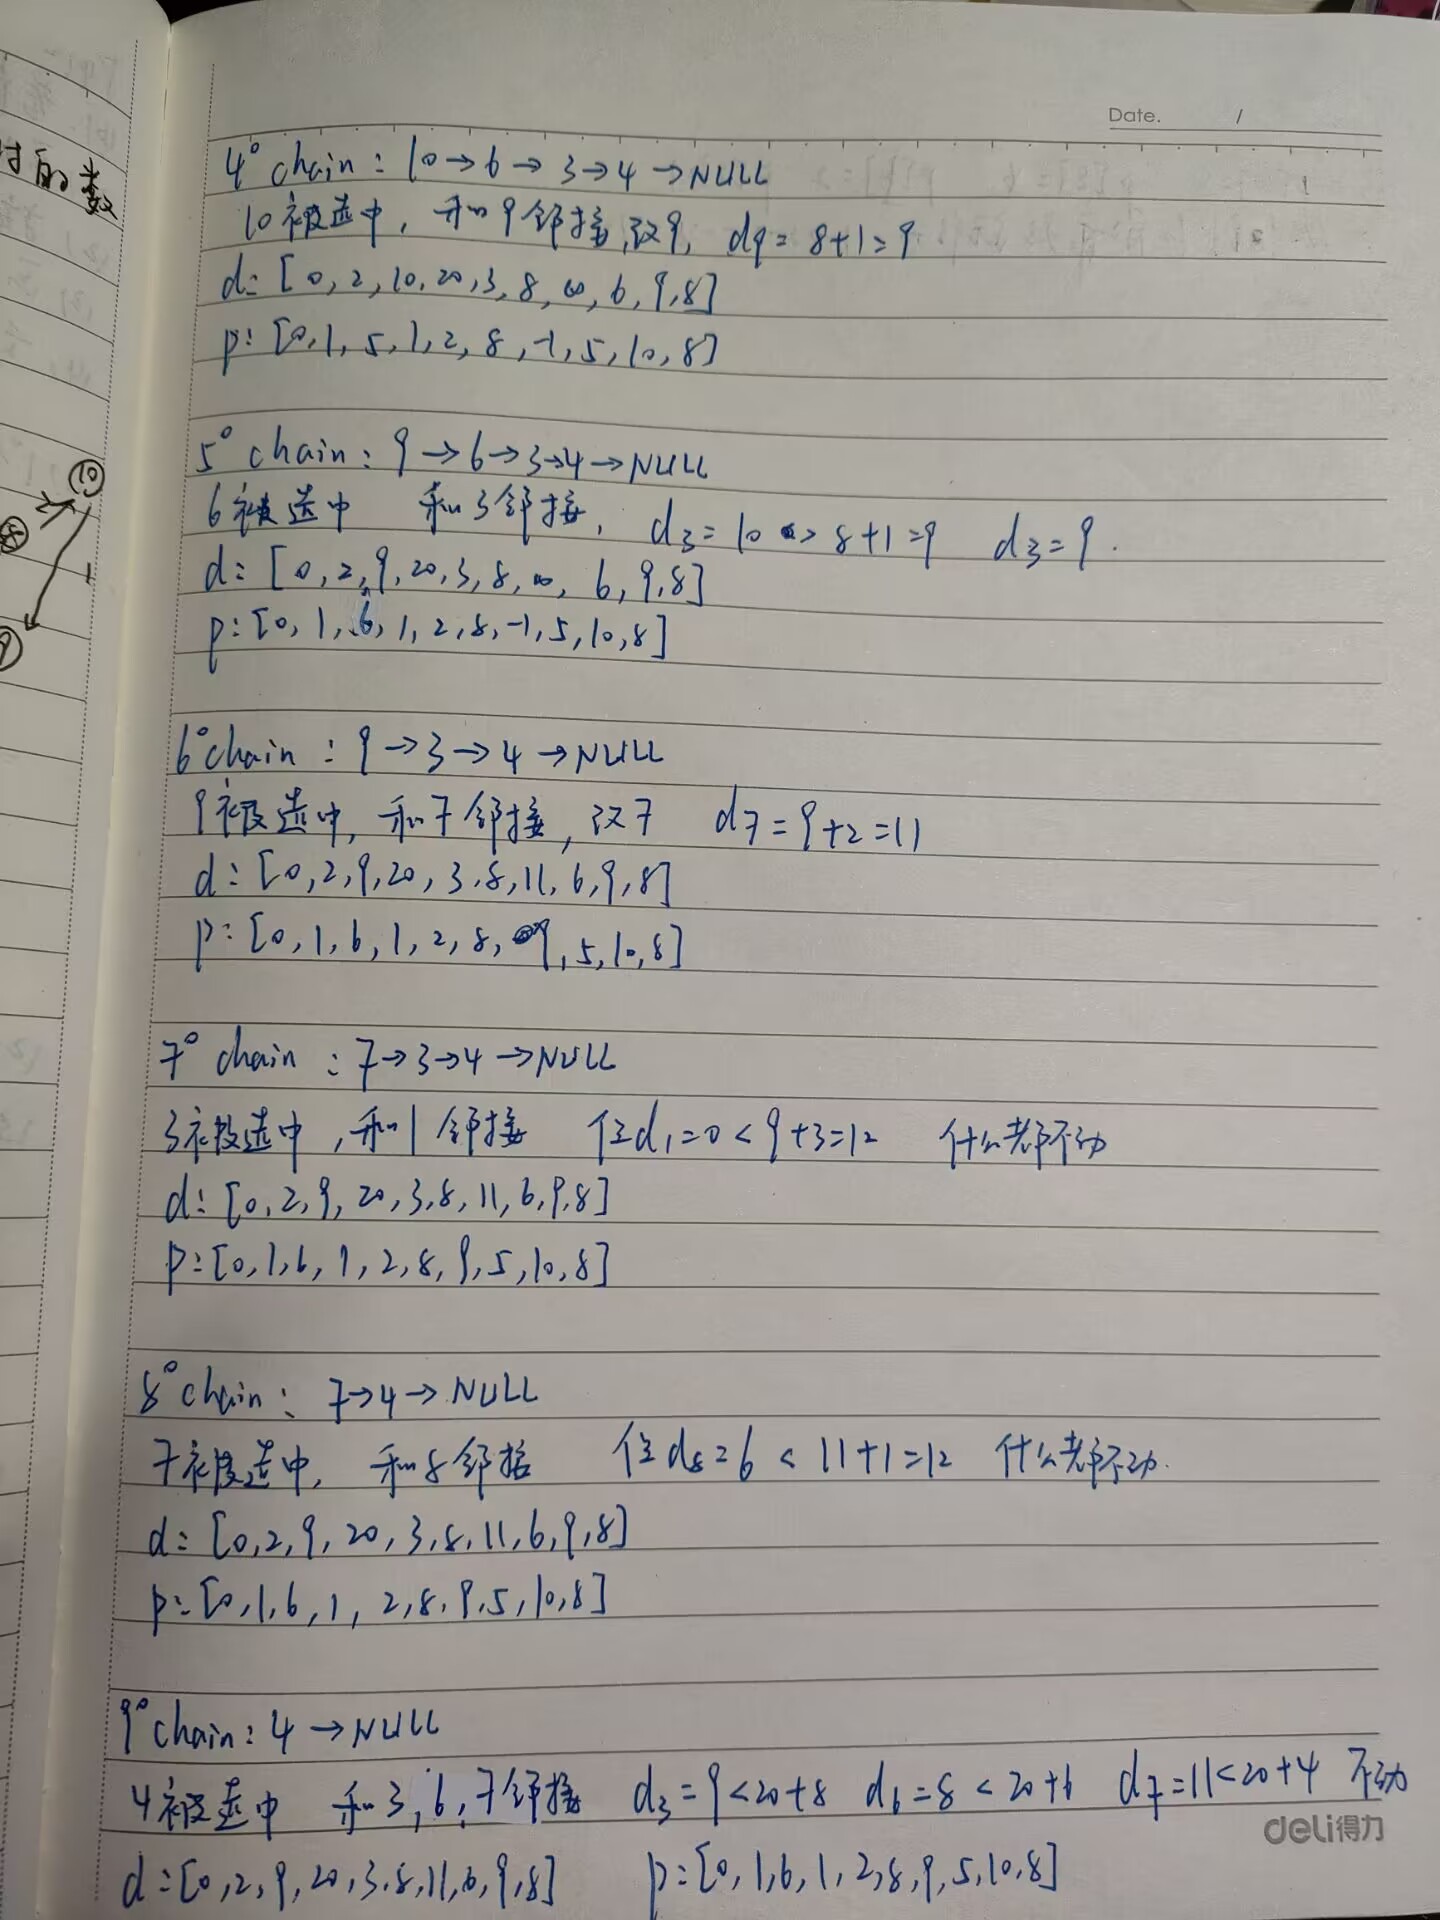 Date. /
时的数
4° chain: 10→6→3→4→NULL
10被选中, 和9邻接, 改9, d9=8+1=9
d: [0,2,10,20,3,8,∞,6,9,8]
p: [0,1,5,1,2,8,-1,5,10,8]
5° chain: 9→6→3→4→NULL
6被选中 和3邻接, d3=10 > 8+1=9 d3=9.
d: [0,2,9,20,3,8,∞,6,9,8]
p: [0,1,6,1,2,8,-1,5,10,8]
10
8
1
9
6° chain: 9→3→4→NULL
9被选中, 和7邻接, 改7 d7=9+2=11
d: [0,2,9,20,3,8,11,6,9,8]
p: [0,1,6,1,2,8,9,5,10,8]
7° chain: 7→3→4→NULL
3被选中, 和1邻接 但d1=0<9+3=12 什么都不动
d: [0,2,9,20,3,8,11,6,9,8]
p: [0,1,6,1,2,8,9,5,10,8]
8° chain: 7→4→NULL
7被选中, 和8邻接 但d8=6<11+1=12 什么都不动.
d: [0,2,9,20,3,8,11,6,9,8]
p: [0,1,6,1,2,8,9,5,10,8]
9° chain: 4→NULL
4被选中 和3,6,7邻接 d3=9<20+8 d6=8<20+6 d7=11<20+4 不动
deli得力
d: [0,2,9,20,3,8,11,6,9,8] p: [0,1,6,1,2,8,9,5,10,8]